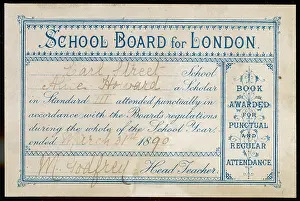 SCHOOL BOARD for LONDON
Earl Street School
Alice Howard a Scholar
in Standard VI attended punctually in
accordance with the Board's regulations
during the whole of the School Year
ended March 31st 1890
M Godfrey Head Teacher.
BOOK
AWARDED
FOR
PUNCTUAL
AND
REGULAR
ATTENDANCE